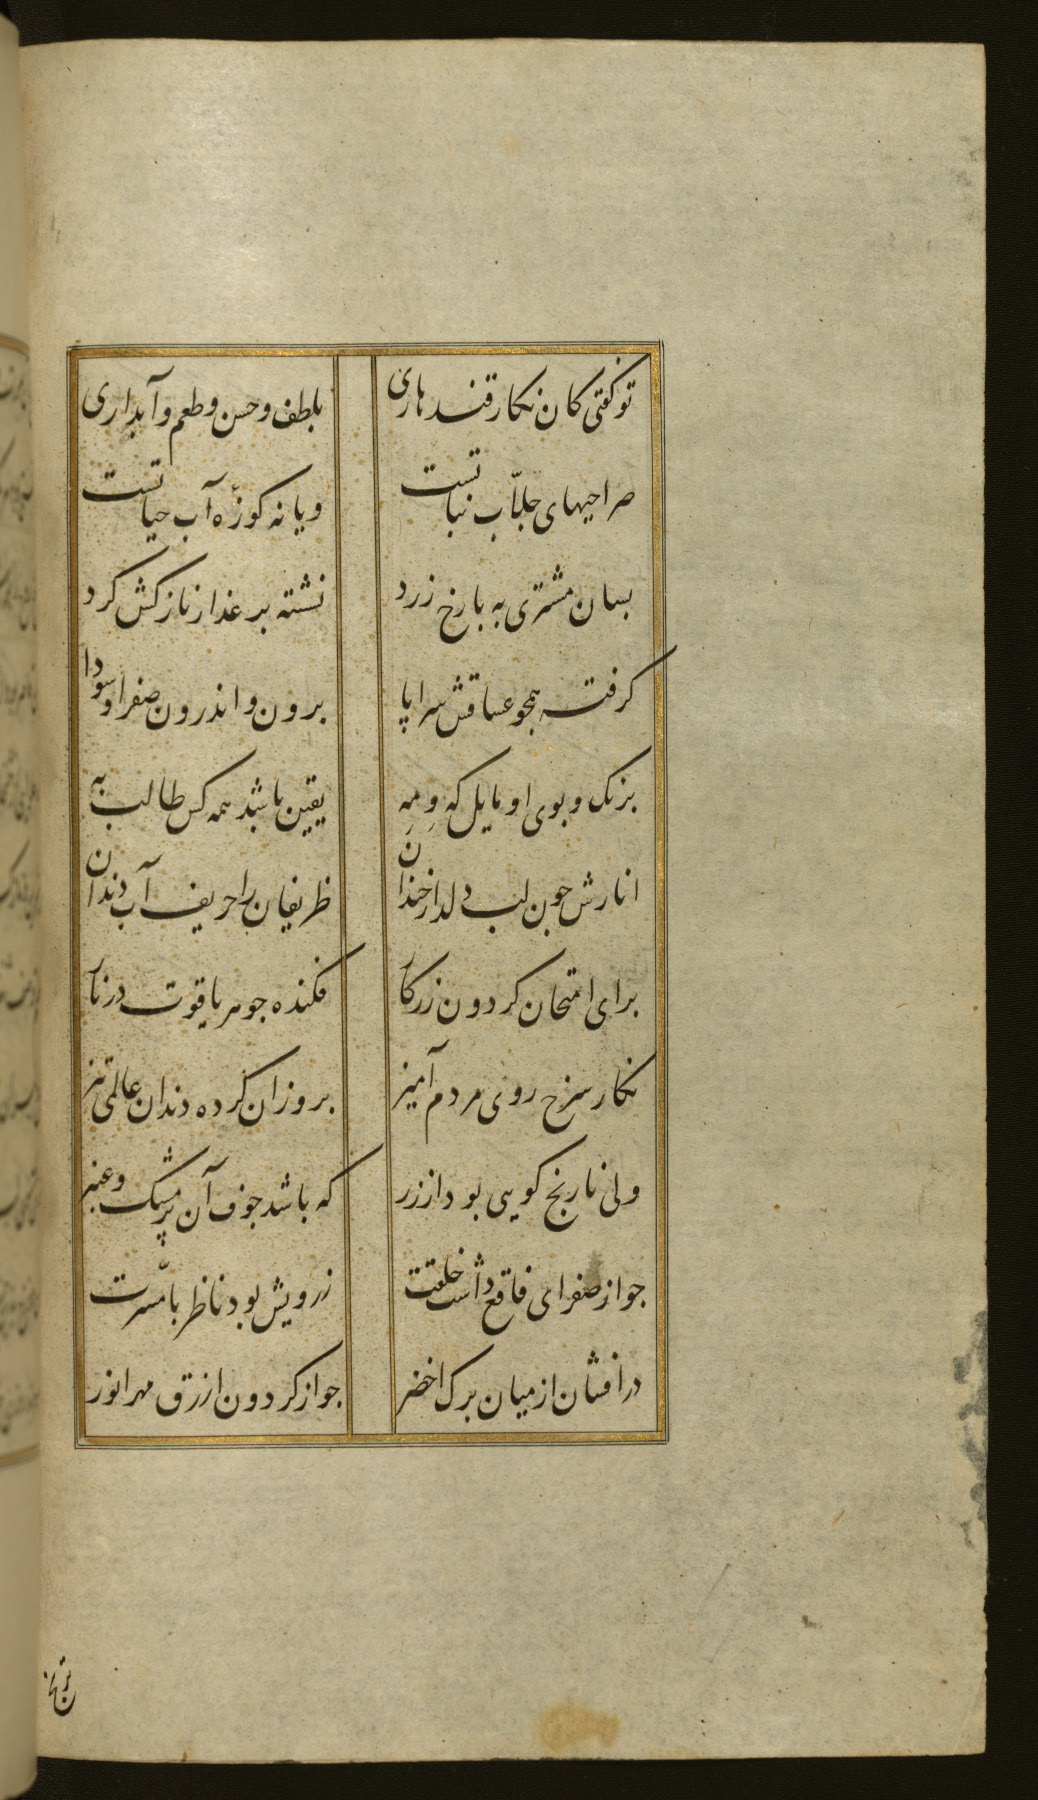 تو گفتی کان نگار قندهاری
بلطف و حسن و طعم و آبداری
صراحیهای جلّاب نباتست
و یا نه کوزهٔ آب حیاتست
بسان مشتری به با رخ زرد
نشسته بر عذار نازکش کرد
کرفته همچو عشاقش سراپا
برون و اندرون صفرا و سودا
برنک و بوی او مایل که و مه
یقین باشد همه کس طالب به
انارش چون لب دلدار خندان
ظریفان را حریف آب دندان
برای امتحان کردون زرکار
فکنده جوهر یاقوت در نار
نکار سرخ روی مردم آمیز
بروزان کرده دندان عالمی تیز
ولی نارنج کویی بود از زر
که باشد جوف آن پر مشک و عنبر
جو از صفرای فاقع داشت خلعت
ز رویش بود ناظر با مسّرت
درافشان از میان برک اخضر
جو از کردون ازرق مهر انور